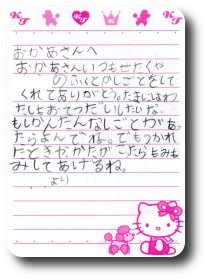 おかあさんへ
おかあさんいつもせんたくや
のふくとかしごとをして
くれてありがとう。たまにはわ
たしもおてつだいしたいな。
もしかんたんなしごとがあっ
たらよんでね。でもつかれ
たときやかたがこったらもみも
みしてあげるね。
より